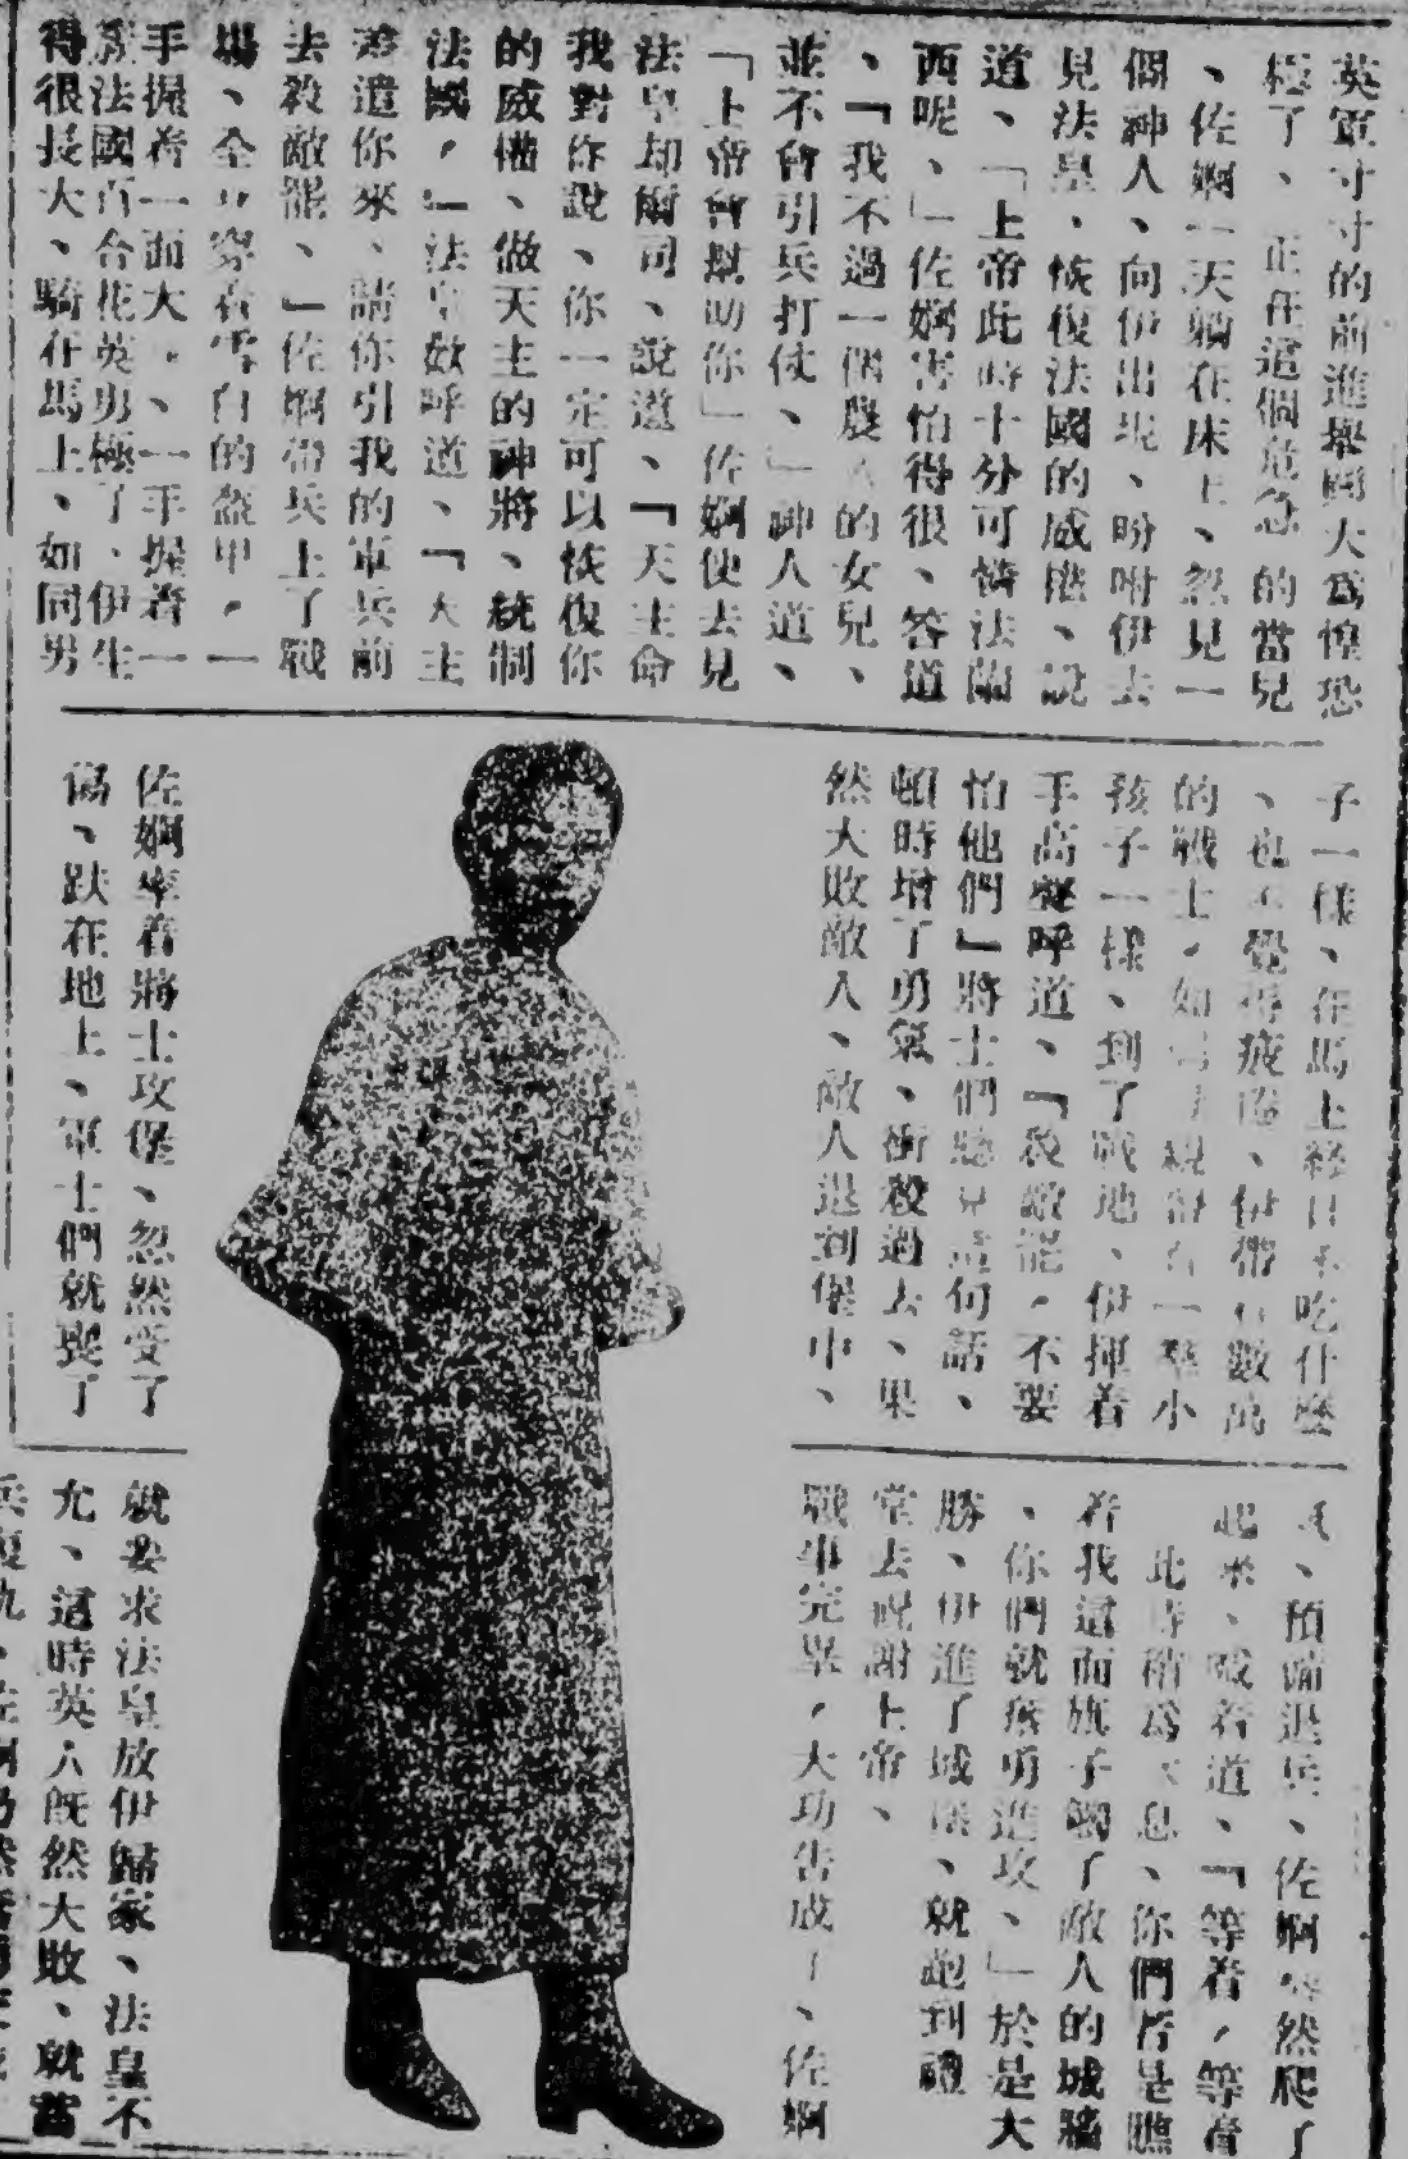 英軍寸寸的前進舉國大爲惶恐
極了、正在這個危急的當兒
、佐婀一天躺在床上、忽見一
個神人、向伊出現、吩咐伊去
見法皇、恢復法國的威權、說
道、「上帝此時十分可憐法蘭
西呢、」佐婀害怕得很、答道
、『我不過一個農人的女兒、
並不會引兵打仗、」神人道、
「上帝會幫助你」佐婀便去見
法皇却爾司、說道、『天主命
我對你說、你一定可以恢復你
的威權、做天主的神將、統制
法國，』法皇歡呼道、『天主
差遣你來、請你引我的軍兵前
去殺敵罷、』佐婀帶兵上了戰
場、全身穿着雪白的盔甲，一
手握着一面大、一手握着一
法國百合花英勇極了、伊生
得很長大、騎在馬上、如同男
子一樣、在馬上經日不吃什麼
、也不覺得疲倦、伊帶數萬
的戰士，如一羣小
孩子一樣、到了戰地、伊揮着
手高聲呼道、『殺敵罷，不要
怕他們』將士們聽見這句話、
頓時增了勇氣、衝殺過去、果
然大敗敵人、敵人退到堡中、
佐婀率着將士攻堡、忽然受了
傷、跌在地上、軍士們就喪了
、預備退兵、佐婀然爬了
起來、喊着道、『等着，等着
此時稍爲息、你們若是瞧
着我這面旗子觸了敵人的城牆
、你們就奮勇進攻、」於是大
勝、伊進了城、就跑到禮
堂去祝謝上帝、
戰事完畢，大功告成、佐婀
就要求法皇放伊歸家、法皇不
允、這時英人既然大敗、就當